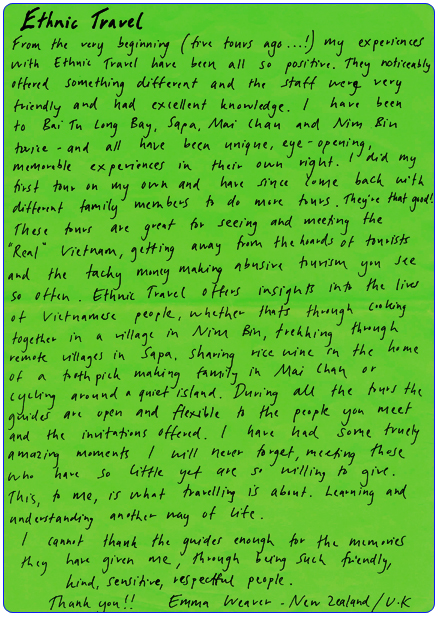 Ethnic Travel
From the very beginning (five tours ago...!) my experiences
with Ethnic Travel have been all so positive. They noticeably
offered something different and the staff were very
friendly and had excellent knowledge. I have been
to Bai Tu Long Bay, Sapa, Mai Chau and Nim Bin
twice - and all have been unique, eye-opening,
memorable experiences in their own right. I did my
first tour on my own and have since come back with
different family members to do more tours. They're that good!
These tours are great for seeing and meeting the
"Real" Vietnam, getting away from the hoards of tourists
and the tachy money making abusive tourism you see
so often. Ethnic Travel offers insights into the lives
of Vietnamese people, whether thats through cooking
together in a village in Nim Bin, trekking through
remote villages in Sapa, sharing rice wine in the home
of a toothpick making family in Mai Chau or
cycling around a quiet island. During all the tours the
guides are open and flexible to the people you meet
and the invitations offered. I have had some truely
amazing moments I will never forget, meeting those
who have so little yet are so willing to give.
This, to me, is what travelling is about. Learning and
understanding another way of life.
I cannot thank the guides enough for the memories
they have given me, through being such friendly,
kind, sensitive, respectful people.
Thank you!! Emma Weaver - New Zealand / U.K